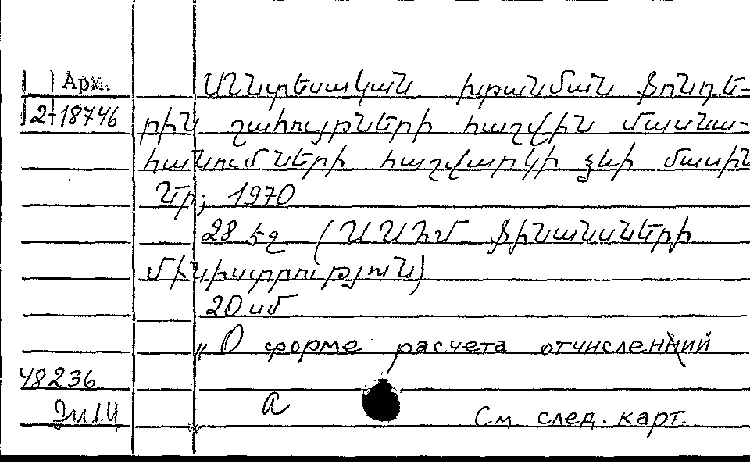 Арм.
2-18746
Տնտեսական խթանման ֆոնդե-
րին շահույթների հաշվին մասնա-
հանումների հաշվարկի ձևի մասին
Եր; 1970
28 էջ (ՍՍՀՄ ֆինանսների
մինիստրություն)
20 սմ
„О форме расчета отчислений
48236
а
См. след. карт.